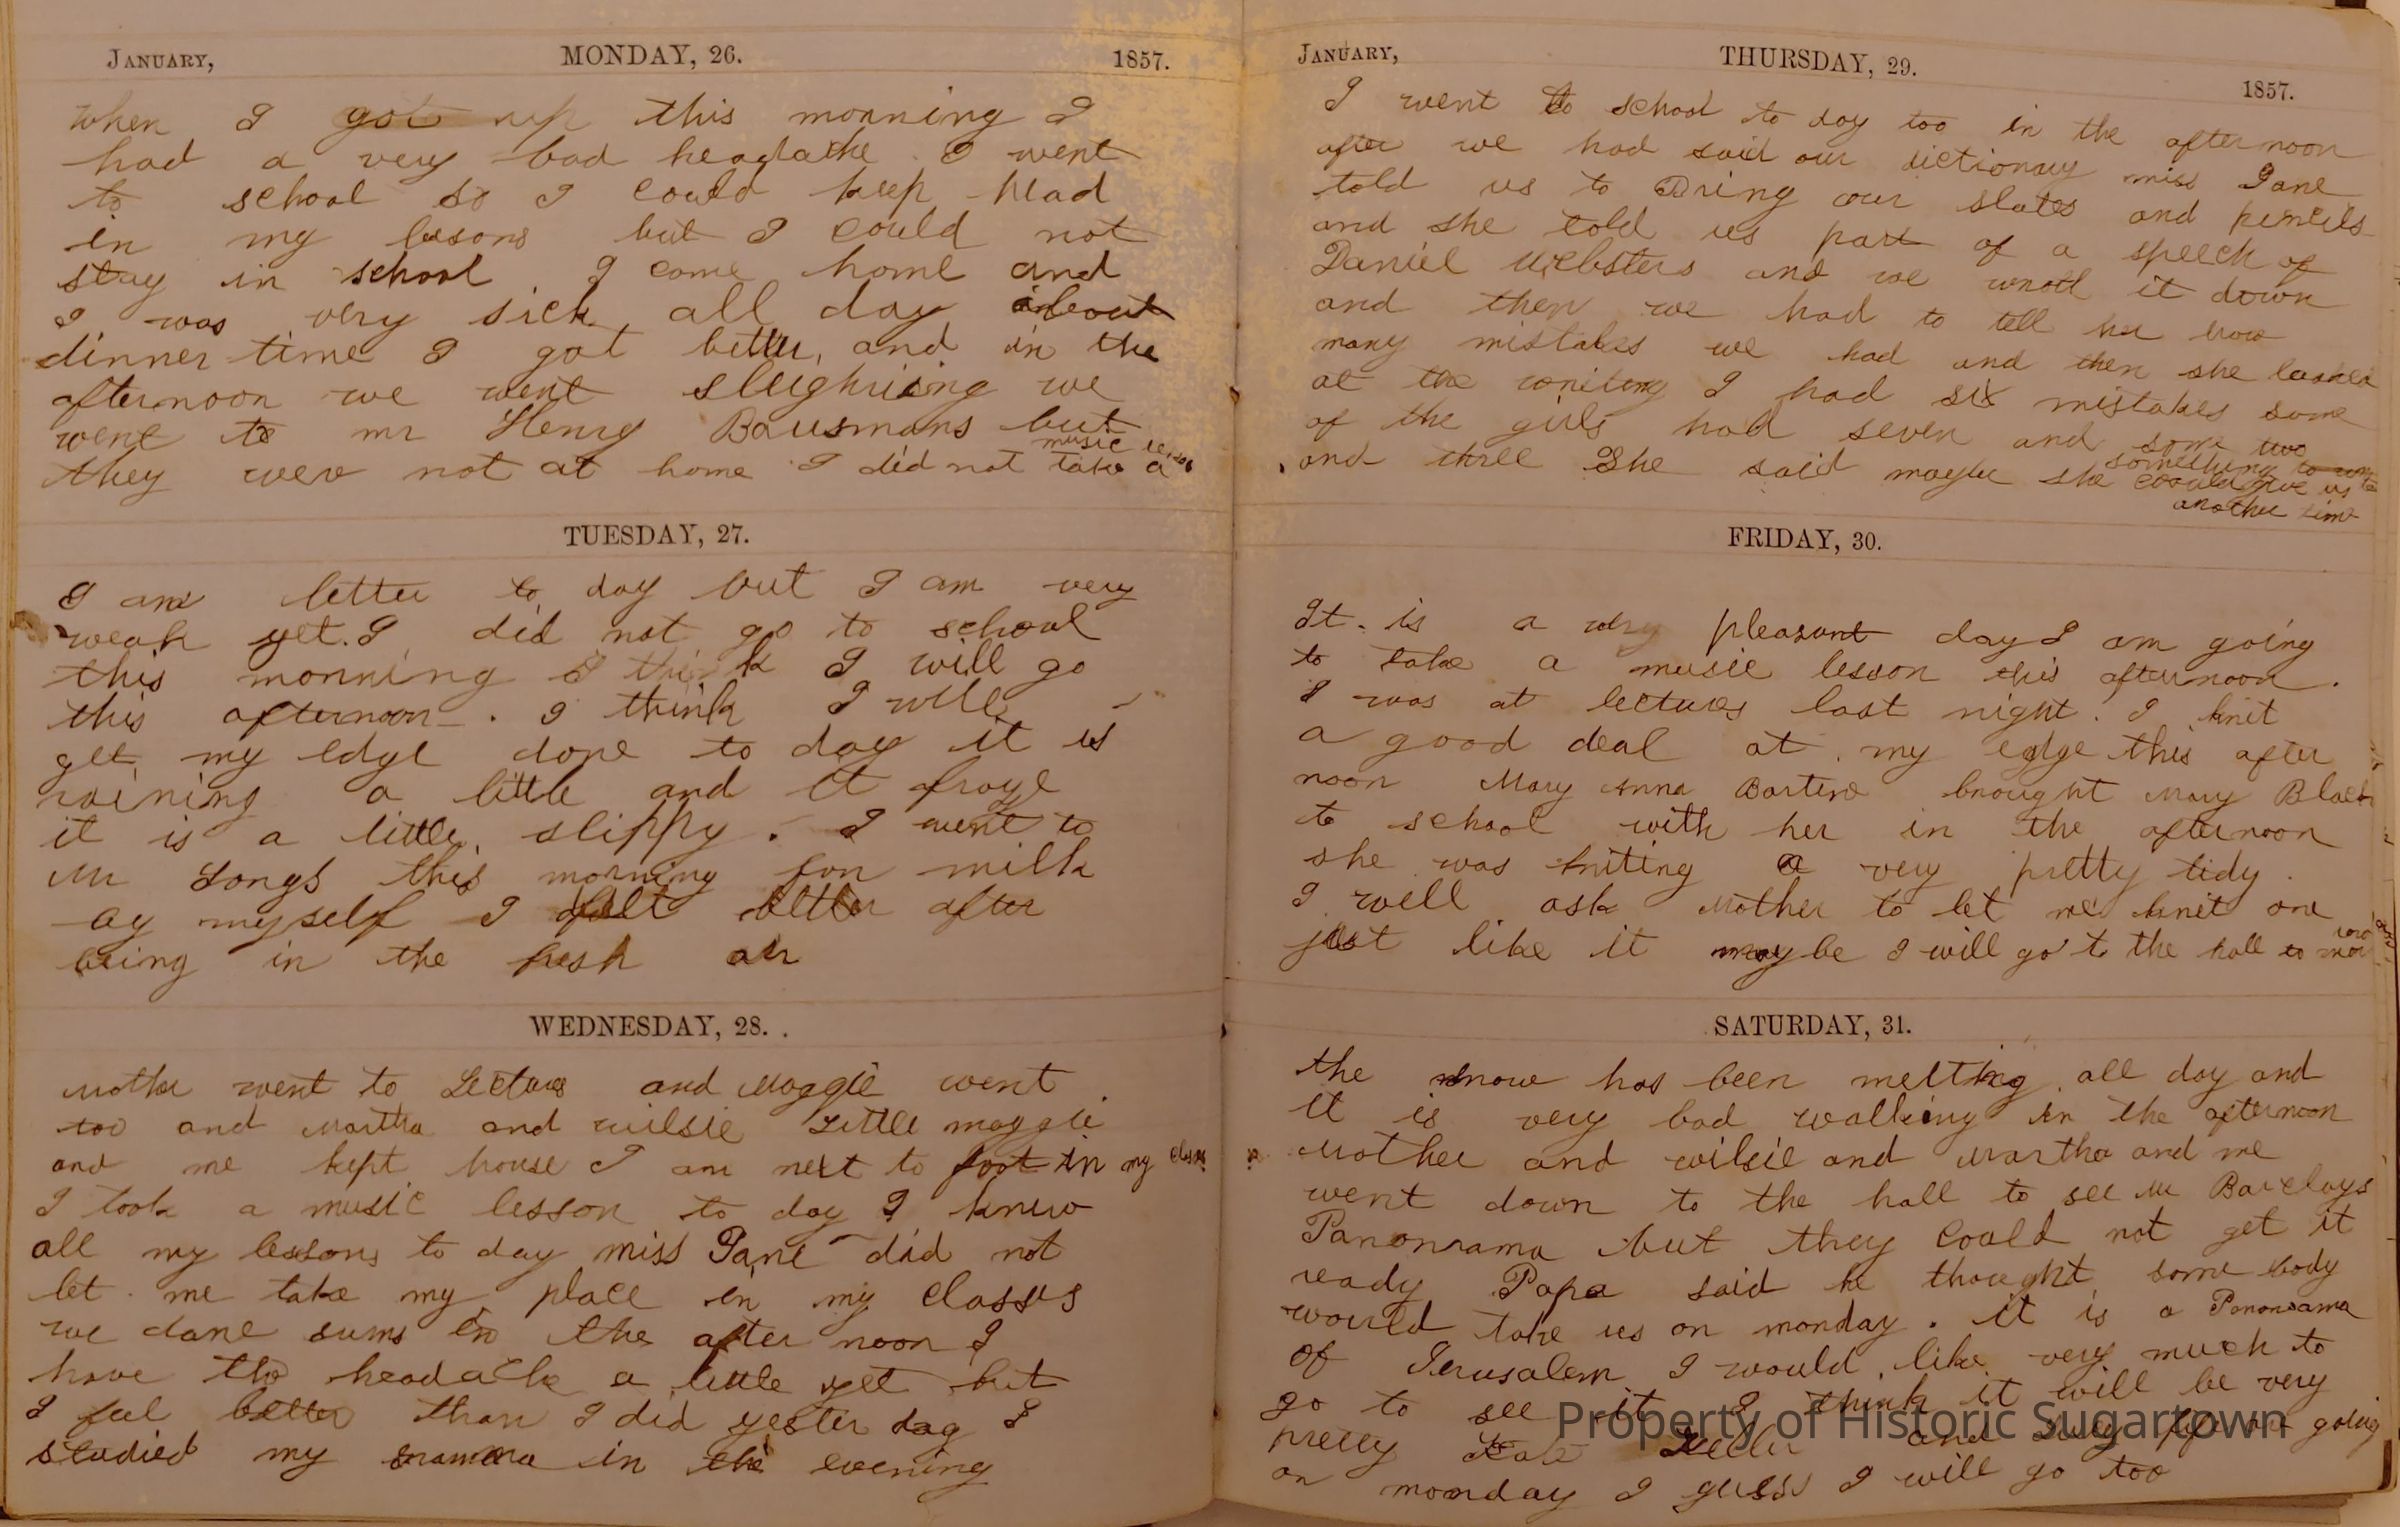 January, MONDAY, 26. 1857.
when I got up this morning I
had a very bad headache. I went
to school so I could keep head
in my lesons but I could not
stay in school I come home and
I was very sick all day about
dinner time I got better, and in the
afternoon we went sleighriing we
went to mr Henry Bausmans but
they were not at home I did not take a
music
TUESDAY, 27.
I am better to day but I am very
weak yet. I did not go to school
this morning I think I will go
this afternoon. I think I will
get my edge done to day it is
raining a little and it froze
it is a little slippy. I went to
Mr Longs this morning for milk
by myself I felt better after
being in the fresh air
WEDNESDAY, 28.
Mother went to Lectures and Maggie went
too and Martha and wilsie Little maggie
and me kept house I am next to foot in my class
I took a music lesson to day I knew
all my lessons to day miss Jane did not
let me take my place in my classes
we done sums in the after noon I
have the headache a little yet but
I feel better than I did yester day I
studied my in the evening
January, THURSDAY, 29. 1857.
I went to school to day too in the afternoon
after we had said our dictionary miss Jane
told us to Bring our slates and pencils
and she told us part of a speech of
Daniel Websters and we wrote it down
and then we had to tell her how
many mistakes we had and then she looked
at the writing I had six mistakes some
of the girls had seven and some two
and three She said maybe she could give us
something to write
another time
FRIDAY, 30.
It is a very pleasant day I am going
to take a music lesson this afternoon.
I was at lectures last night. I knit
a good deal at my edge this after
noon Mary Anna brought Mary Black
to school with her in the afternoon
she was kniting a very pretty tidy.
I will ask Mother to let me knit one
just like it maybe I will go to the hall to mor
row
SATURDAY, 31.
the snow has been melting all day and
it is very bad walking in the afternoon
Mother and wilsie and Martha and me
went down to the hall to see Mr Barclays
Panonrama but they could not get it
ready Papa said he thought some body
would take us on monday. it is a Panonrama
of Jerusalem I would like very much to
go to see it I think it will be very
pretty Kate and are going
on monday I guess I will go too
Property of Historic Sugartown